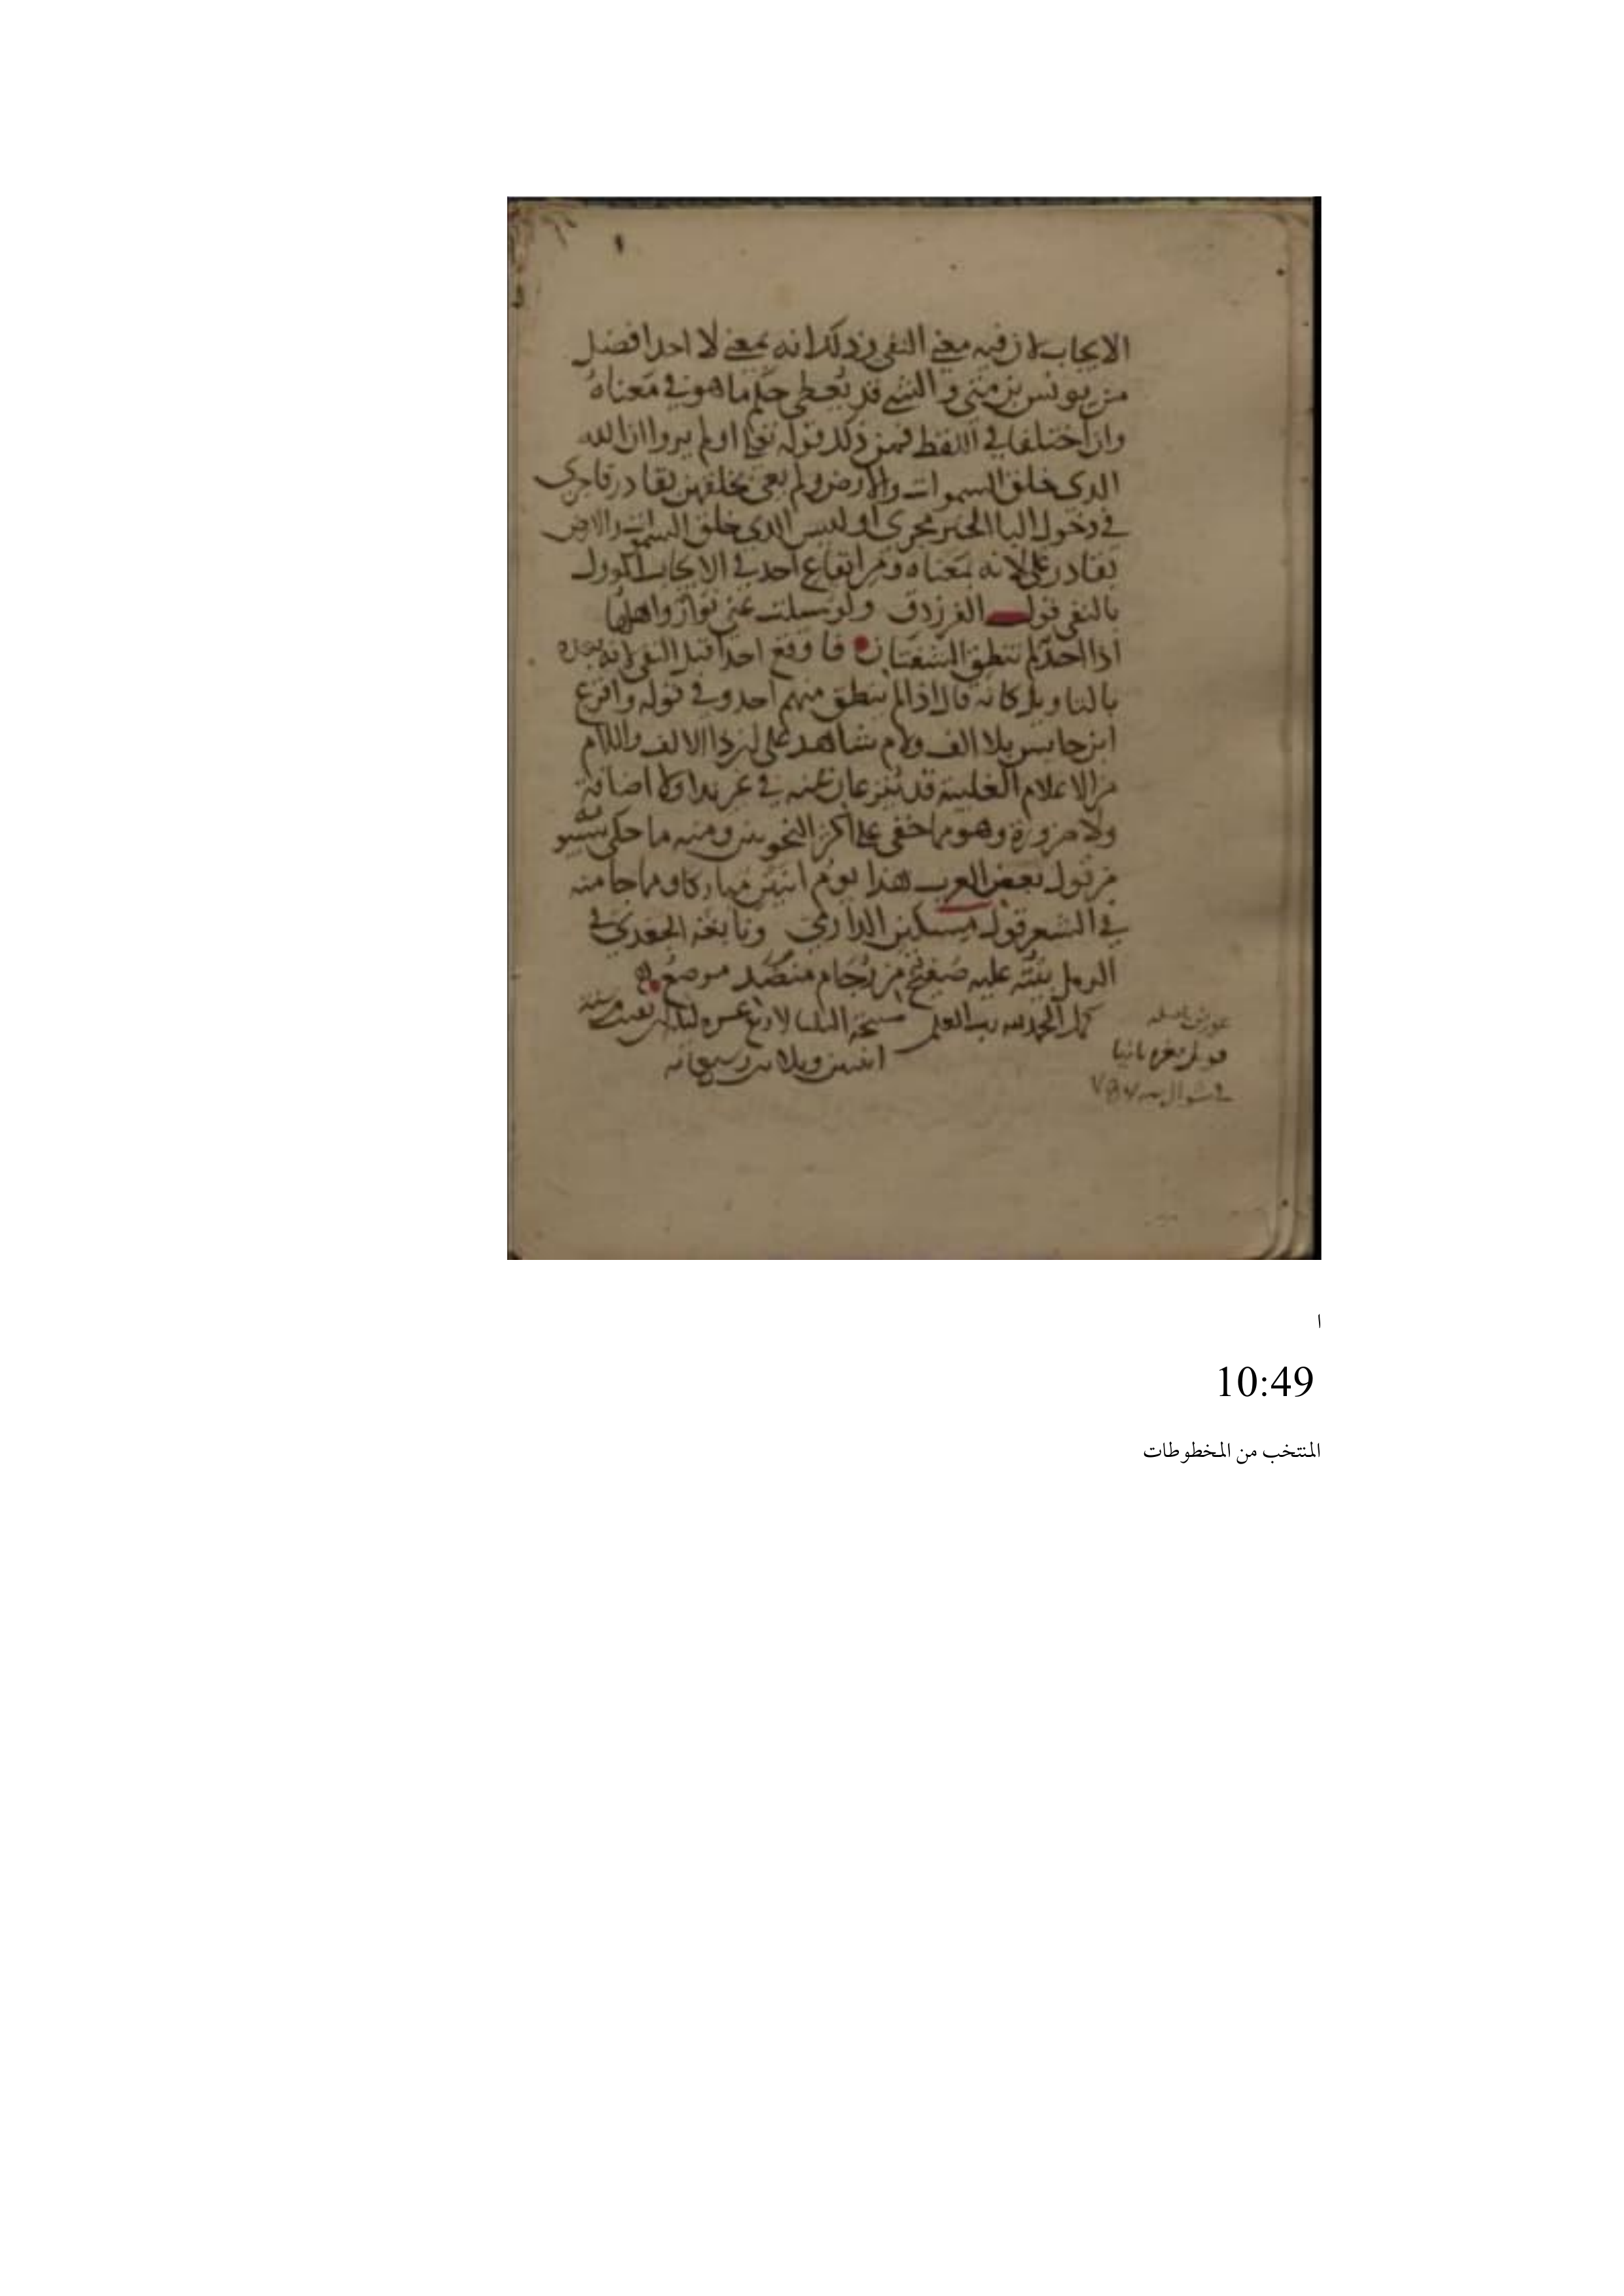 الايجاب لان فيه معنى النفي وذلك انه بمعنى لا احد افضل
من يونس بن متى والشي قد يعطى حكم ما هو في معناه
وان اختلفا في اللفظ فمن ذلك قوله تعالى اولم يروا ان الله
الذي خلق السموات والارض ولم يعي بخلقهن بقادر فاجري
في دخول البا الخبر مجرى اوليس الذي خلق السموات والارض
بقادر على لانه بمعناه ومن ايقاع احد في الايجاب المؤول
بالنفي قول الفرزدق ولو سلت عني نوار واهلها
اذا احد لم تنطق الشفتان فاوقع احدا قبل النفي لانه بعده
بالتاويل كانه قال اذا لم ينطق منهم احد وفي قوله واقرع
ابن حابس بلا الف ولام شاهد على ان ذا الالف واللام
من الاعلام الغلبية قد تنزعان عنه في غير ندا ولا اضافة
ولا ضرورة وهو مما خفي على اكثر النحويين ومنه ما حكى سيبويه
من قول بعض العرب هذا يوم اثنين مباركا ومما جا منه
في الشعر قول مسكين الدارمي ونابغة الجعدي في
الرمل بيته عليه صفيح من رخام منضد موضع
كمل الحمد لله رب العلمين صبيحة الثلثا لاربع عشره ليلة بقيت من سنة
اثنين وثلاثين وسبعمائة
عورض باصله
قوبل بغيره ثانيا
في شوال سنه
ا
10:49
المنتخب من المخطوطات